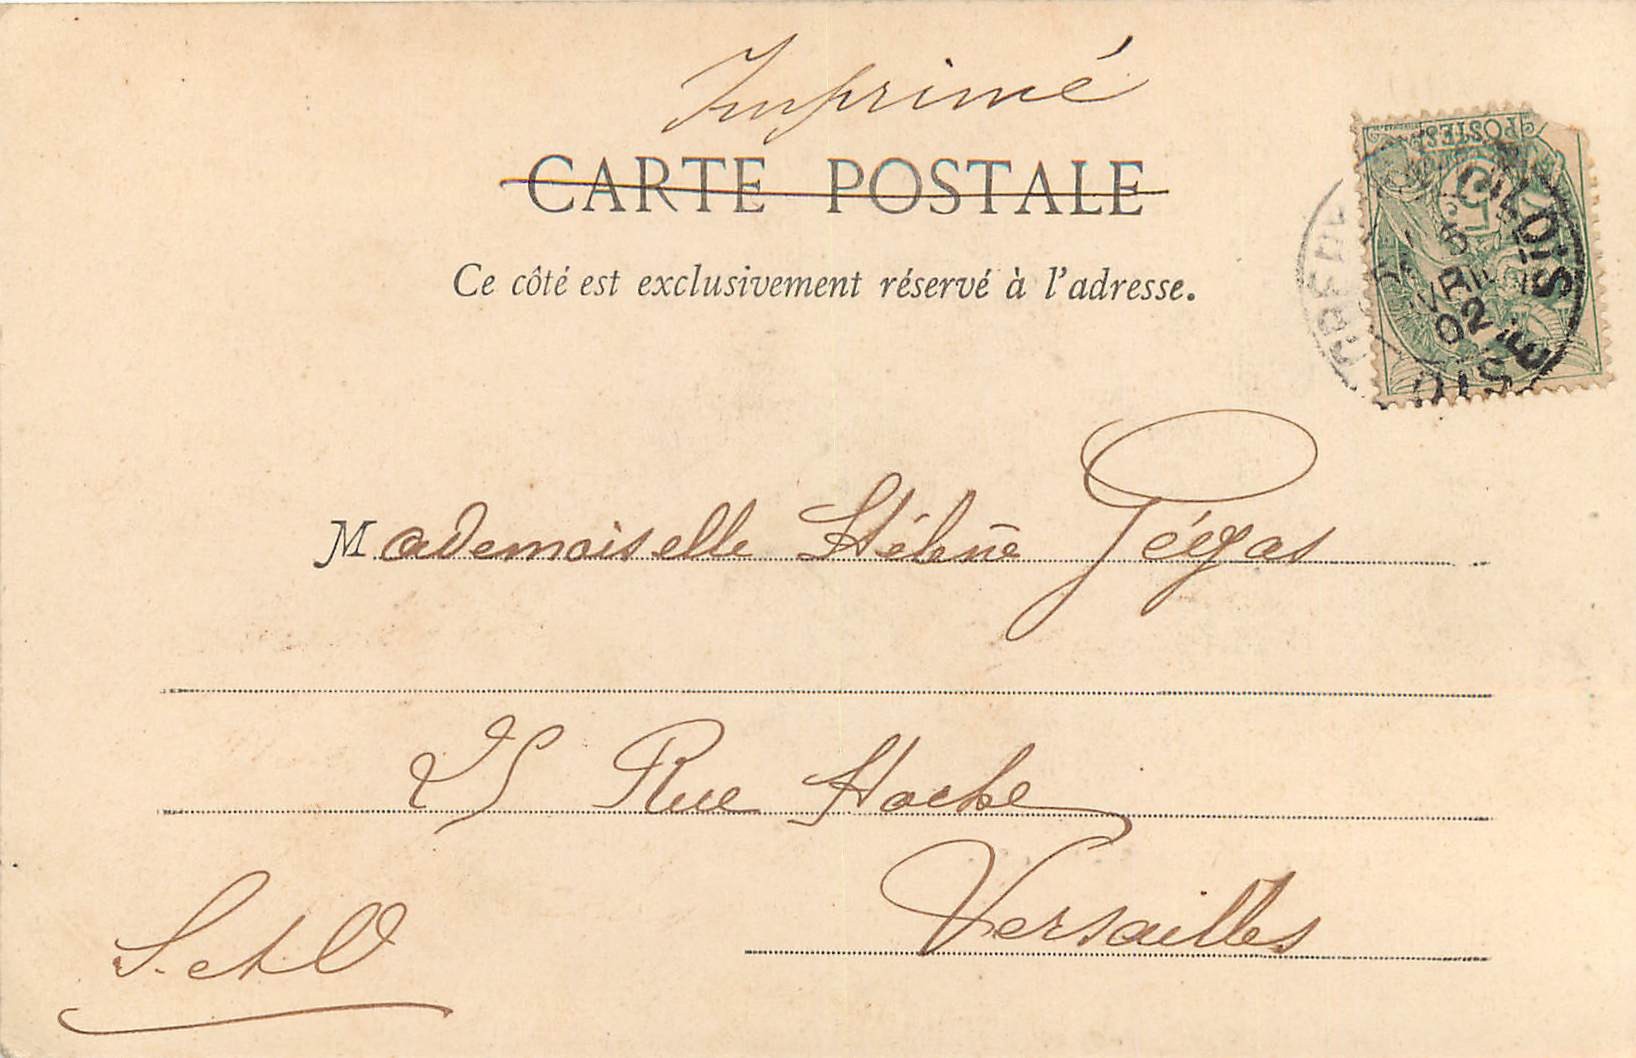 Imprimé
CARTE POSTALE
Ce côté est exclusivement réservé à l'adresse.
POSTES
5
02
OISE
Mademoiselle Hélène Pégas
25 Rue Hoche
Versailles
S. et O